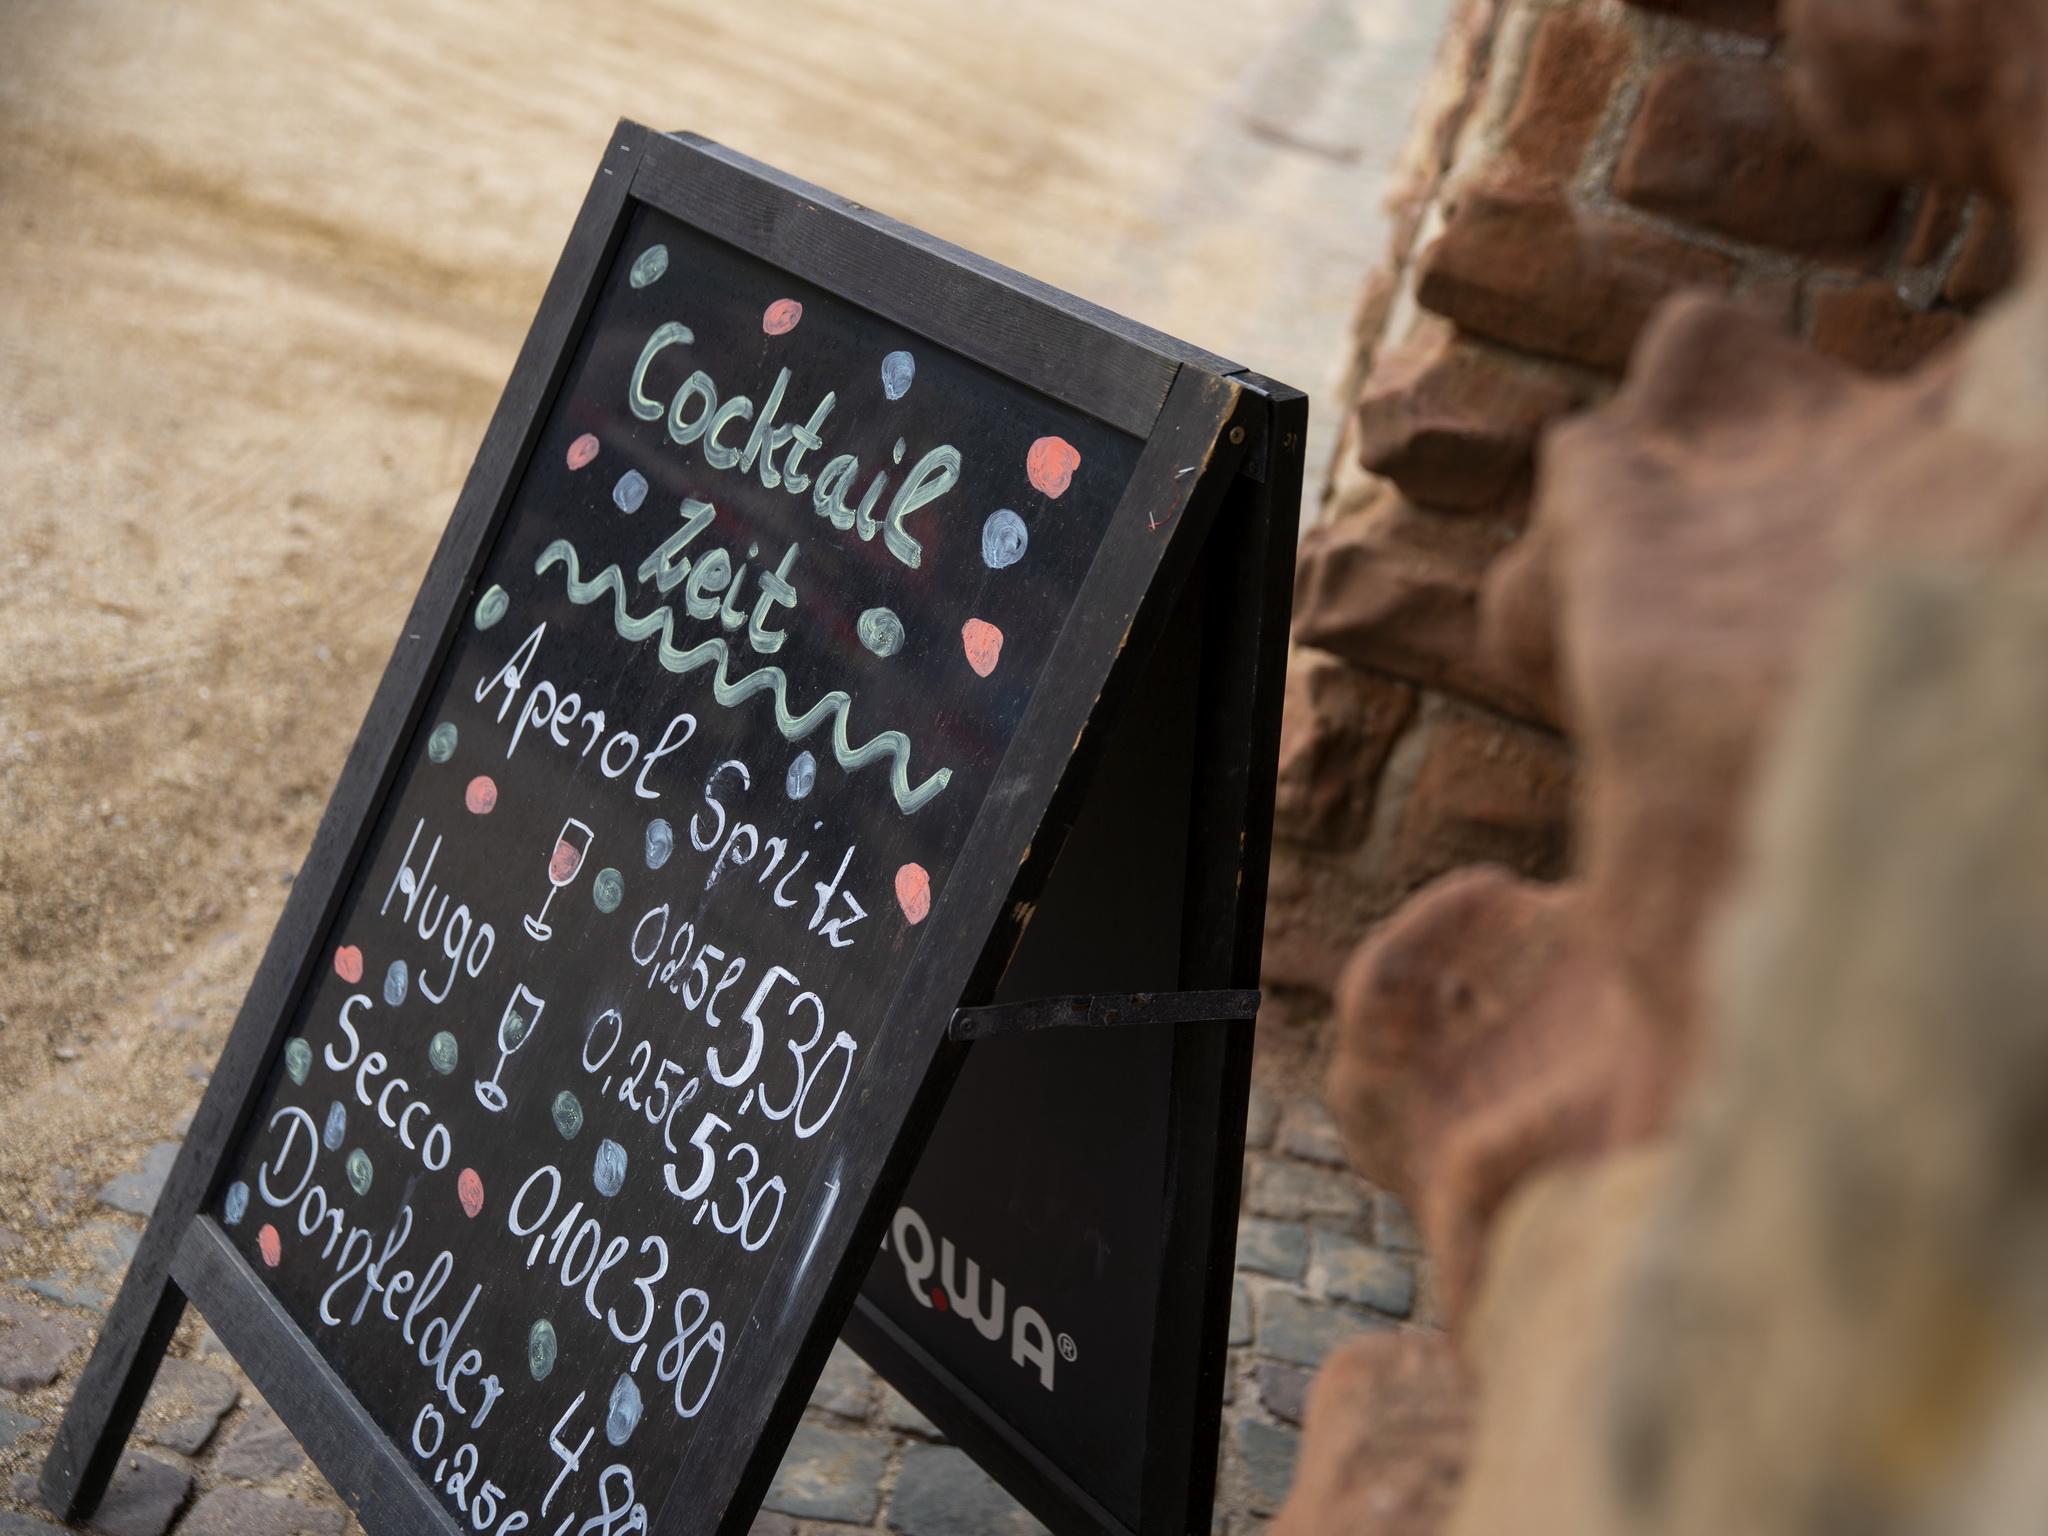 Cocktail
Zeit
Aperol Spritz
0,25l 5,30
Hugo
0,25l 5,30
Secco
0,10l 3,80
Dornfelder
0,25l 4,80